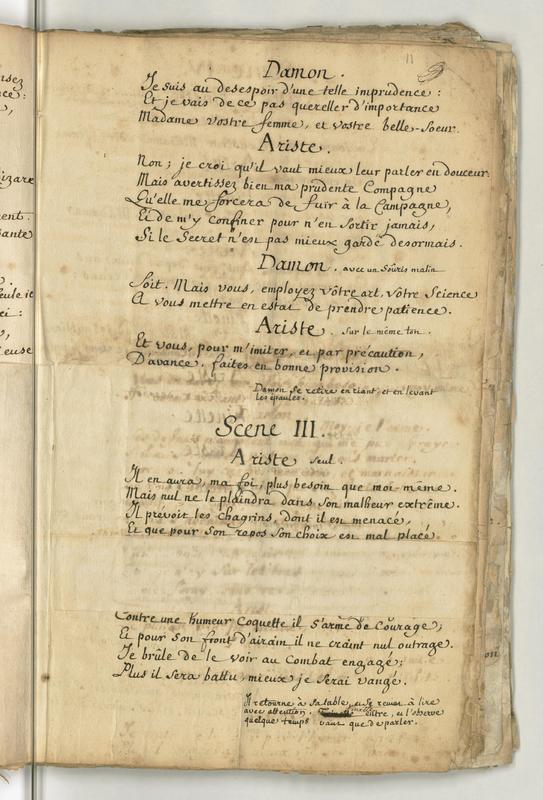 nsez
nce:
izare
ment.
sante
seule ie
ei:
ieuse
11
9
Damon.
Je suis au desespoir d'une telle imprudence :
Et je vais de ce pas quereller d'importance
Madame vostre femme, et vostre belle-Soeur.
Ariste.
Non ; je croi qu'il vaut mieux leur parler en douceur.
Mais avertissez bien ma prudente Compagne
Qu'elle me forcera de fuir à la Campagne,
Et de m'y confiner pour n'en Sortir jamais,
Si le Secret n'est pas mieux gardé desormais.
Damon. avec un Souris malin
Soit. Mais vous, employez vôtre art, vôtre Science
A vous mettre en estat de prendre patience.
Ariste. Sur le même ton.
Et vous, pour m'imiter, et par précaution,
D'avance, faites en bonne provision.
Damon Se retire en riant, et en levant
les épaules.
Scene III.
Ariste seul.
Il en aura, ma foi, plus besoin que moi-même.
Mais nul ne le plaindra dans Son malheur extrême.
Il prévoit les chagrins, dont il est menacé,
Et que pour Son repos Son choix est mal placé
Contre une humeur Coquette il S'arme de Courage ;
Et pour Son front d'airain il ne craint nul outrage.
Je brûle de le voir au Combat engagé ;
Plus il Sera battu, mieux je Serai vangé.
Il retourne à Sa table, et Se remet à lire
avec attention. entre, et l'observe
quelque temps avant que de parler.
on